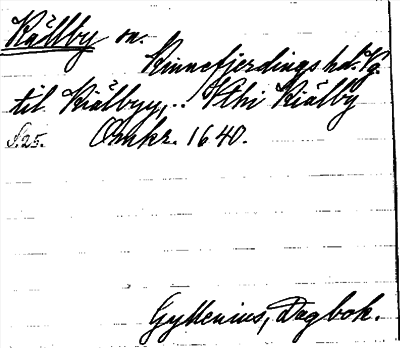 Källby sn.
Kinnefjerdings hd. Vg.
til Kiälbyy,.. Ithi Kiälby
S. 25. Omkr. 1640.
Gyllenius, Dagbok.